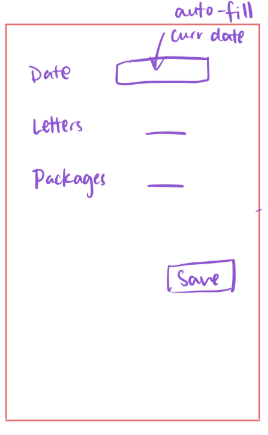 auto-fill
curr date
Date
Letters
Packages
Save